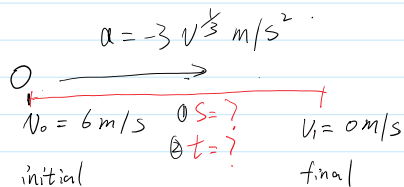 a = -3 v^{1/3} m/s²
V₀ = 6 m/s ① S = ? V₁ = 0 m/s
② t = ?
initial final